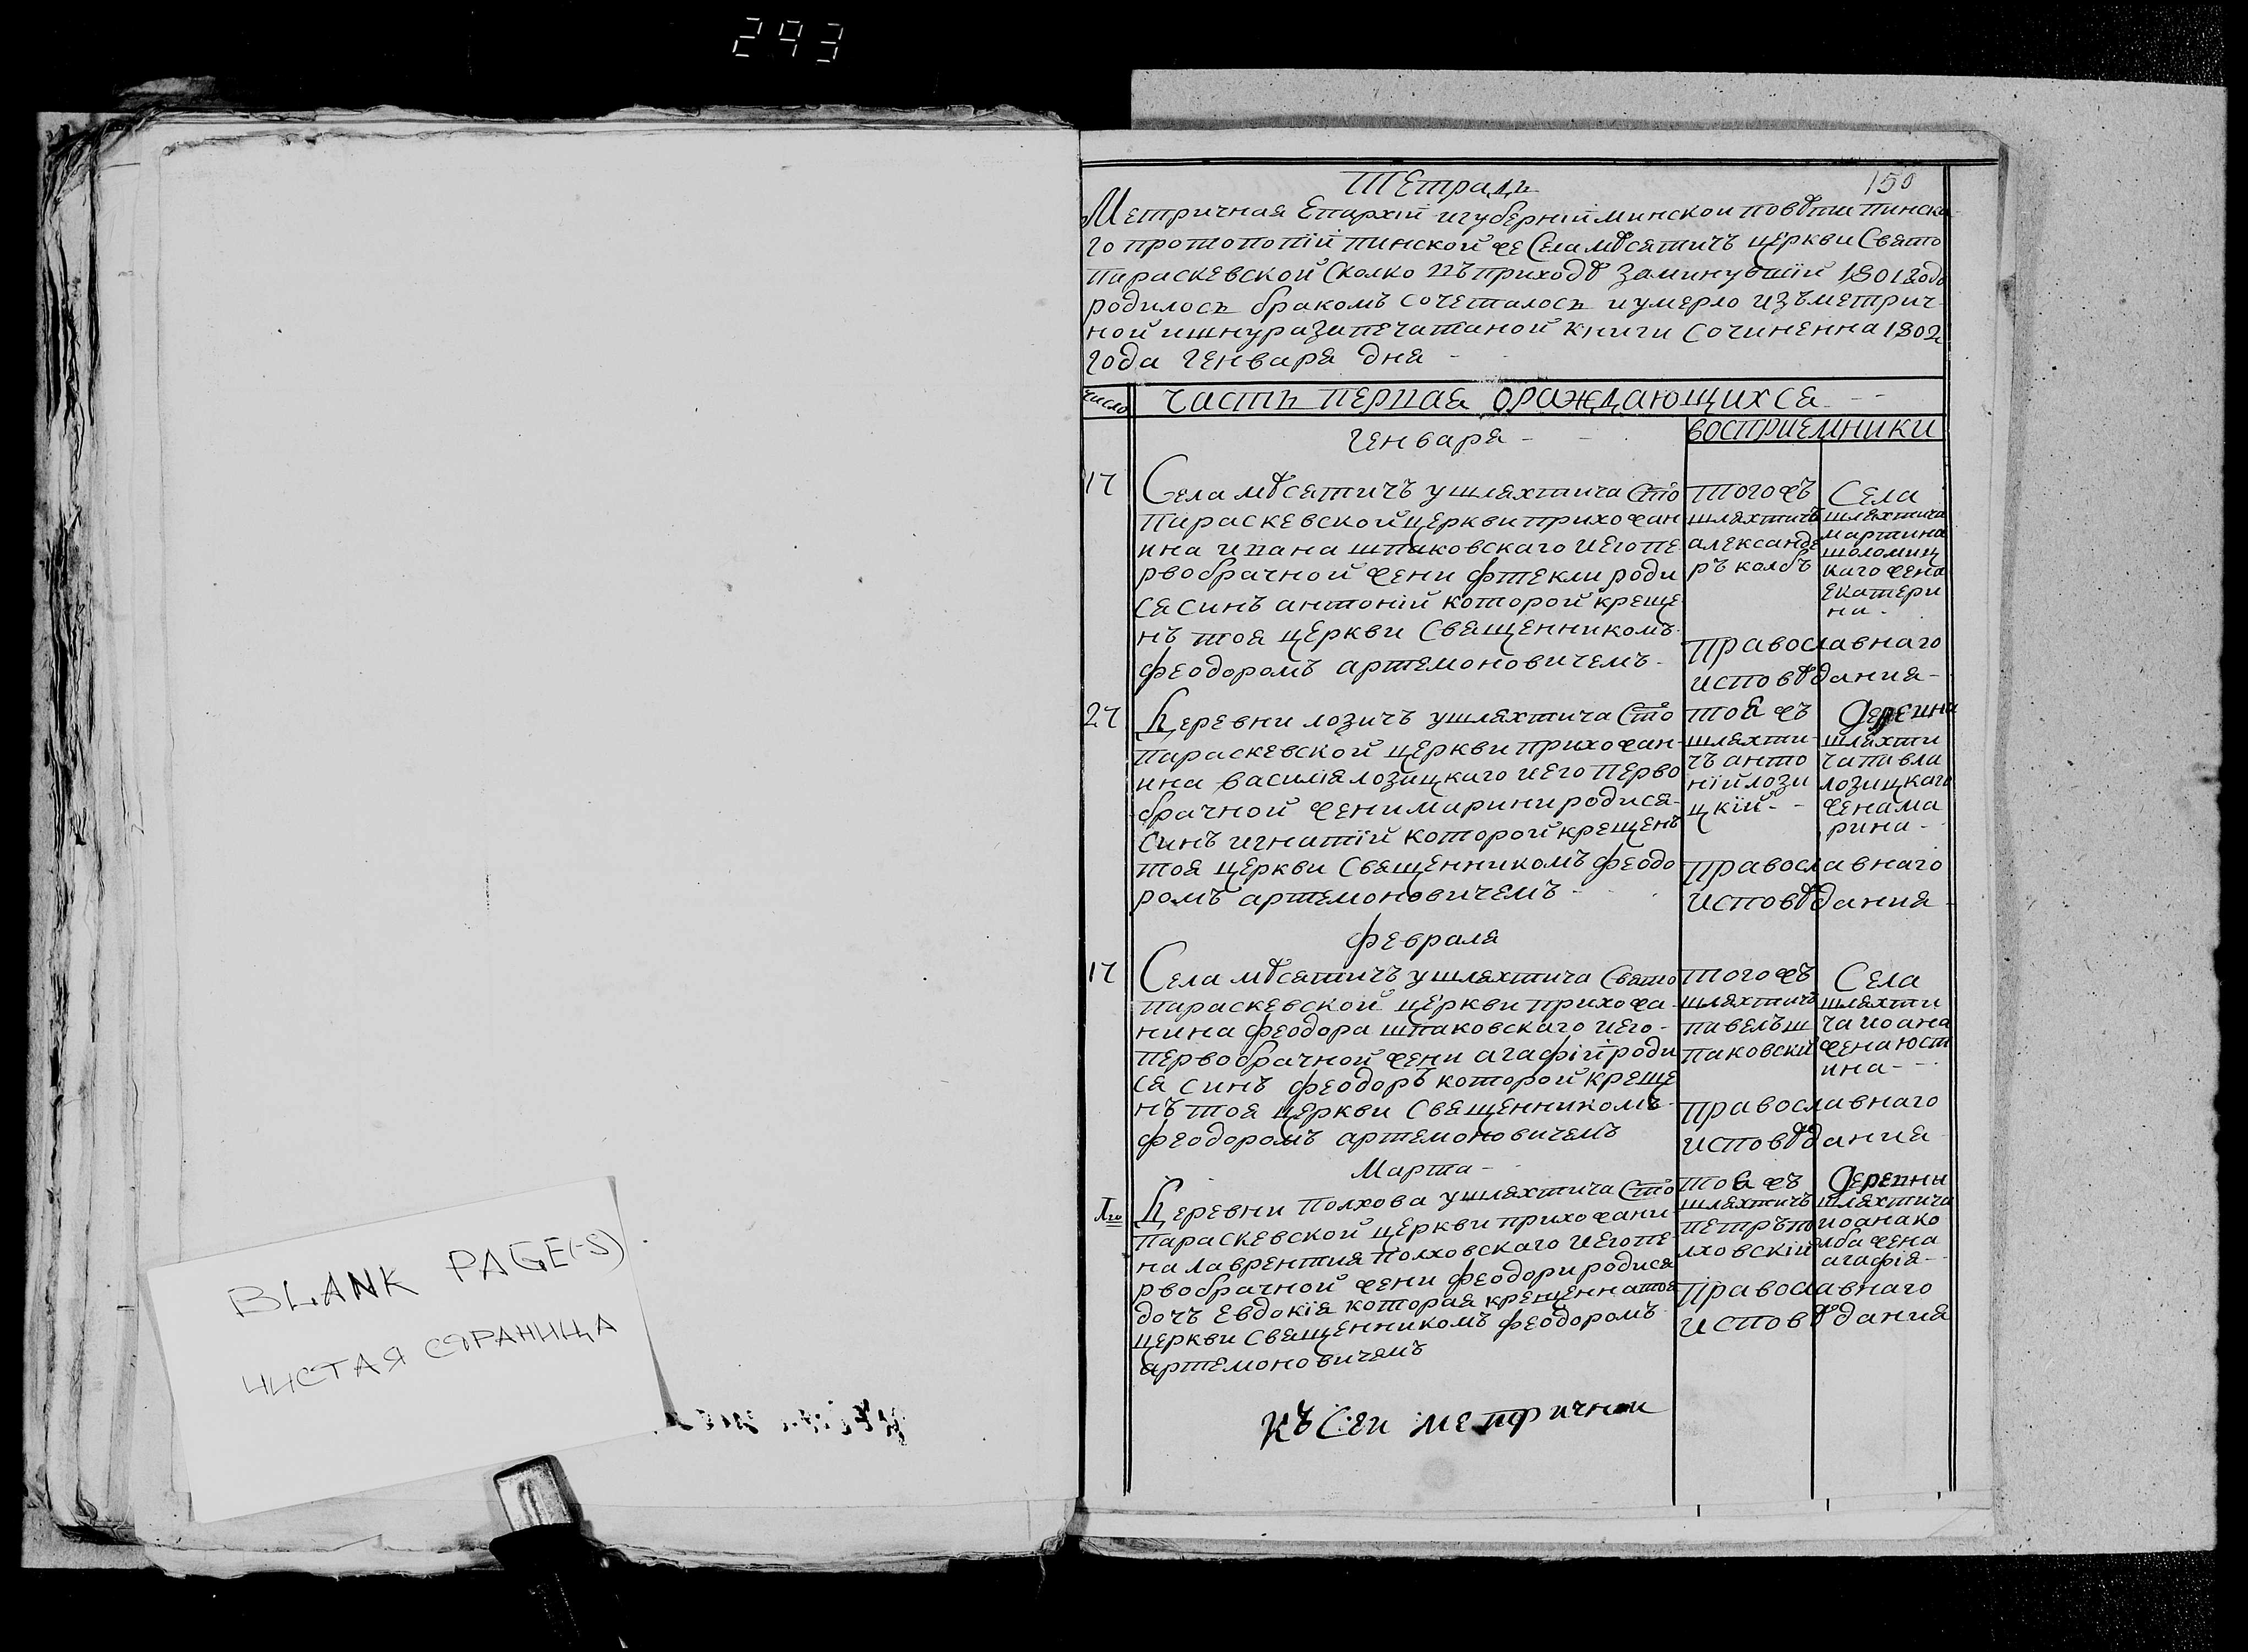 293
BLANK PAGE(-S)
ЧИСТАЯ СТРАНИЦА
Тетрадь
150
Метричная Епархіи и губерніи минской повѣта пинска
го протопопіи пинской же села мѣсятичъ церкви Свято
параскевской сколко въ приходѣ заминувшій 1801 годъ
родилось бракомъ сочеталось и умерло изъ метрич
ной и шнуразапечатаной книги сочиненна 1802
года генваря дня -
число
часть первая ораждающихся
восприемники
Генваря -
17
Села мѣсятичъ у шляхтича Сто
параскевской церкви прихожан
ина ивана шпаковскаго и его пе
рвобрачной жени фтекли роди
ся синъ антоній которой креще
нъ тоя церкви священникомъ
феодоромъ артемоновичемъ -
тогожъ
шляхтичъ
александе
ръ колбъ
Села
шляхтича
мартина
шоломиц
каго жена
екатери
на -
православнаго
исповѣдания -
27
Деревни лозичъ у шляхтича Сто
параскевской церкви прихожан-
ина василія лозицкаго и его перво
брачной жени марини родися-
синъ игнатій которой крещенъ
тоя церкви священникомъ феодо
ромъ артемоновичемъ -
тоя жъ
шляхти-
чъ анто
ній лози
цкій -
деревни
шляхти
ча павла
лозицкаго
жена ма
рина -
православнаго
исповѣдания -
февраля
17
Села мѣсятичъ у шляхтича Свято
параскевской церкви прихожа
нина феодора шпаковскаго и его -
первобрачной жени агафіи роди
ся синъ феодоръ которой креще
нъ тоя церкви священникомъ -
феодоромъ артемоновичемъ
тогожъ
шляхтичъ
павелъ ш
паковскій
Села
шляхти
ча иоана
жена юст
ина -
православнаго
исповѣдания
Марта -
1го
Деревни Полхова у шляхтича Сто
параскевской церкви прихожани
на лаврентия полховскаго и его пе
рвобрачной жени феодори родися
дочъ Евдокія которая крещенна тоя
церкви священникомъ феодоромъ
артемоновичемъ
тоя жъ
шляхтичъ
петръ по
лховскій
деревни
шляхтича
иоана ко
лба жена
агафія -
православнаго
исповѣдания
Къ сей метричной